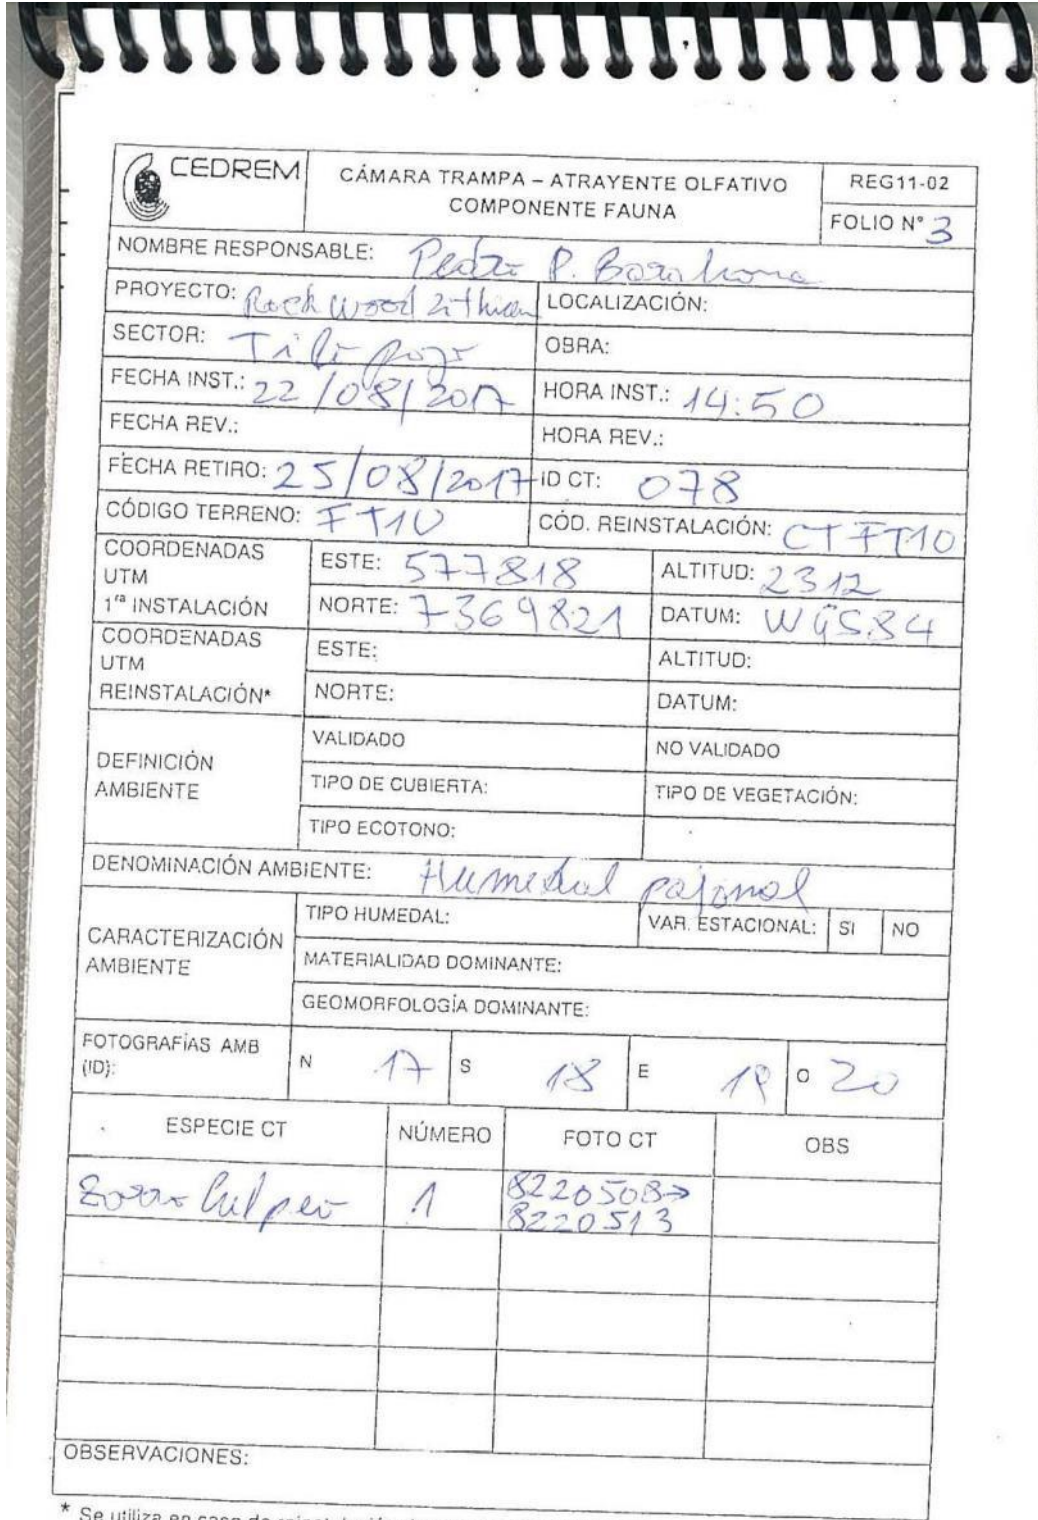 CEDREM
CÁMARA TRAMPA – ATRAYENTE OLFATIVO
COMPONENTE FAUNA
REG11-02
FOLIO N° 3
NOMBRE RESPONSABLE: Pedro P. Barahona
PROYECTO: Rockwood Lithium
LOCALIZACIÓN:
SECTOR: Tilopozo
OBRA:
FECHA INST.: 22/08/2017
HORA INST.: 14:50
FECHA REV.:
HORA REV.:
FECHA RETIRO: 25/08/2017
ID CT: 078
CÓDIGO TERRENO: FT10
CÓD. REINSTALACIÓN: CTFT10
COORDENADAS
UTM
1ra INSTALACIÓN
ESTE: 577818
ALTITUD: 2312
NORTE: 7369821
DATUM: WGS84
COORDENADAS
UTM
REINSTALACIÓN*
ESTE:
ALTITUD:
NORTE:
DATUM:
DEFINICIÓN
AMBIENTE
VALIDADO
NO VALIDADO
TIPO DE CUBIERTA:
TIPO DE VEGETACIÓN:
TIPO ECOTONO:
DENOMINACIÓN AMBIENTE: Humedal pajonal
CARACTERIZACIÓN
AMBIENTE
TIPO HUMEDAL:
VAR. ESTACIONAL: SI NO
MATERIALIDAD DOMINANTE:
GEOMORFOLOGÍA DOMINANTE:
FOTOGRAFÍAS AMB
(ID):
N 17 S 18 E 19 O 20
ESPECIE CT NÚMERO FOTO CT OBS
Zorro Culpeo 1 8220508→
8220513
OBSERVACIONES:
* Se utiliza en caso de